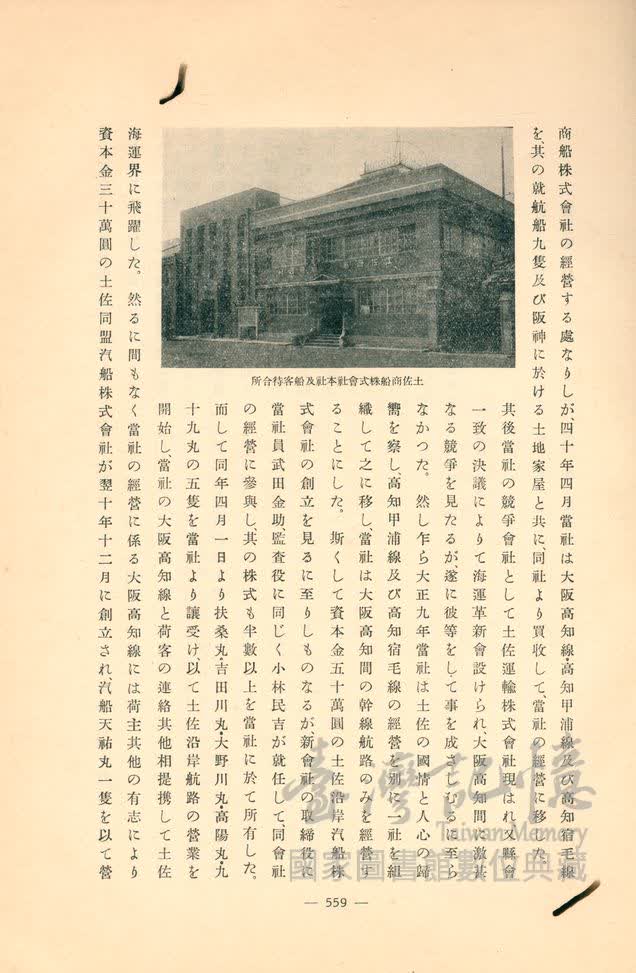 商船株式會社の經營する處なりしが、四十年四月當社は大阪高知線・高知甲浦線及び高知宿毛線
を、其の就航船九隻及び阪神に於ける土地家屋と共に同社より買收して、當社の經營に移した。
土佐商船株式會社本社及船客待合所
其後當社の競爭會社として土佐運輸株式會社現はれ又縣會
一致の決議によりて海運革新會設けられ、大阪高知間に激甚
なる競爭を見たるが、遂に彼等をして事を成さしむるに至ら
なかつた。 然し乍ら大正九年當社は土佐の國情と人心の歸
嚮を察し、高知甲浦線及び高知宿毛線の經營を別に一社を組
織して之に移し、當社は大阪高知間の幹線航路のみを經營す
ることにした。 斯くして資本金五十萬圓の土佐沿岸汽船株
式會社の創立を見るに至りしものなるが、新會社の取締役に
當社員武田金助、監査役に同じく小林民吉が就任して、同會社
の經營に參與し、其の株式も半數以上を當社に於て所有した。
而して同年四月一日より扶桑丸・吉田川丸・大野川丸・高陽丸・九
十九丸の五隻を當社より讓受け、以て土佐沿岸航路の營業を
開始し、當社の大阪高知線と荷客の連絡其他相提携して土佐
海運界に飛躍した。 然るに間もなく當社の經營に係る大阪高知線には荷主其他の有志により
資本金三十萬圓の土佐同盟汽船株式會社が翌十年十二月に創立され、汽船天祐丸一隻を以て營
— 559 —
臺灣記憶
Taiwan Memory
國家圖書館數位典藏